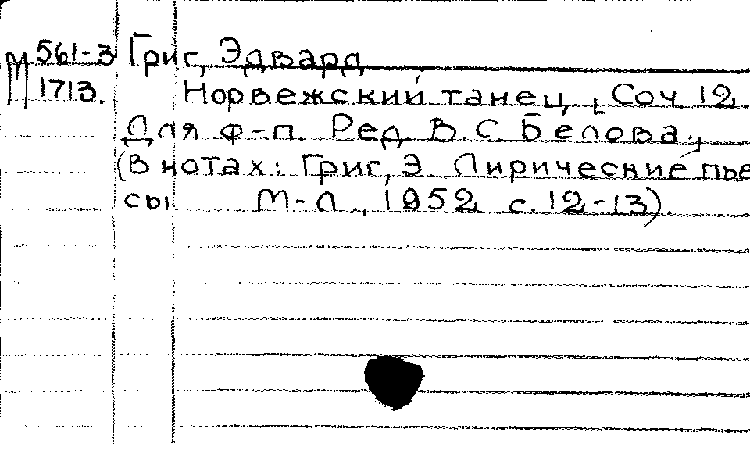 М 561-3 Григ, Эдвард
1713. Норвежский танец, Соч 12.
Для ф-п. Ред. В.С. Белова.
(В нотах: Григ, Э. Лирические пье
сы М-Л., 1952 с. 12-13).